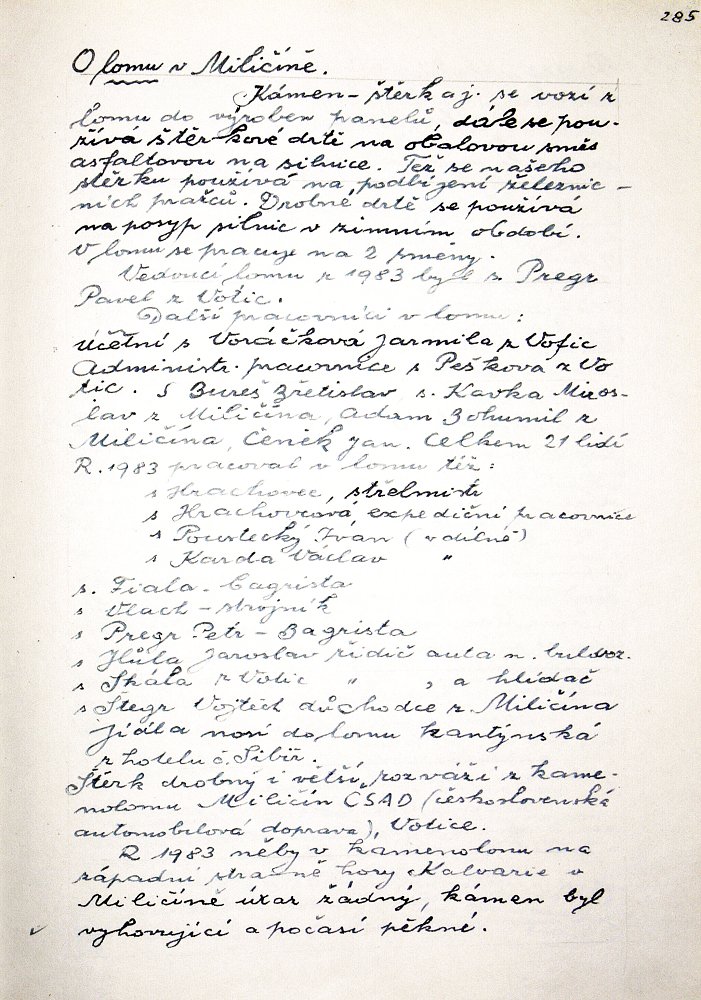 285
O lomu v Miličíně.
Kámen - štěrk aj. se vozí z
lomu do výroben panelů, dále se pou-
žívá štěrkové drtě na obalovou směs
asfaltovou na silnice. Též se našeho
štěrku používá na podbíjení železnic-
ních pražců. Drobné drtě se používá
na posyp silnic v zimním období.
V lomu se pracuje na 2 směny.
Vedoucí lomu r 1983 byl s. Pregr
Pavel z Votic.
Další pracovníci v lomu:
účetní s Voráčková Jarmila z Votic
Administr. pracovnice s Pešková z Vo
tic. S Bureš Břetislav s. Kavka Miros-
lav z Miličína, Adam Bohumil z
Miličína, Čeněk Jan. Celkem 21 lidí
R. 1983 pracoval v lomu též:
s Hrachovec, střelmistr
s Hrachovcová expediční pracovnice
s Poustecký Iván (v dílně)
s Karda Václav "
s. Fiala - bagrista
s Vlach - strojník
s Pregr Petr - Bagrista
s Hůla Jaroslav řidič auta n.
s Skála z Votic " , a hlídač
s Štegr Vojtěch důchodce z Miličína
Jídla nosí do lomu kantýnská
z hotelu č. Sibiř.
Štěrk drobný i větší, rozváží z kame-
nolomu Miličín ČSAD (československá
automobilová doprava), Votice.
R 1983 něby v kamenolomu na
západní straně hory Kalvarie v
Miličíně úraz žádný, kámen byl
vyhovující a počasí pěkné.